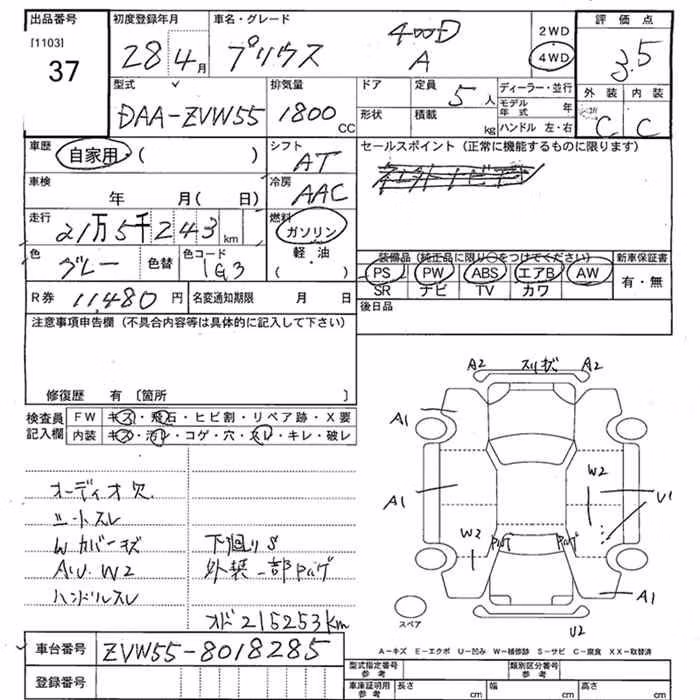 出品番号
[1103]
37
初度登録年月
28 4月
車名・グレード
プリウス
4WD
A
2WD
4WD
評価点
3.5
外装 内装
C C
型式
DAA-ZVW55
排気量
1800 CC
ドア
形状
定員
5人
積載
kg
ディーラー・並行
モデル年式 年
ハンドル 左・右
車歴
自家用・( )
シフト
AT
セールスポイント (正常に機能するものに限ります)
車検
年 月( 日)
冷房
AAC
走行
21万5千243km
燃料
ガソリン
軽・油
( )
色
グレー
色替
色コード
1G3
装備品 (純正品に限り○をつけてください)
PS PW ABS エアB AW
SR ナビ TV カワ
新車保証書
有・無
R券 11,480円
名変通知期限 月 日
後日品
注意事項申告欄 (不具合内容等は具体的に記入して下さい)
修復歴 有 〔箇所 〕
検査員記入欄
FW キズ・飛石・ヒビ割・リペア跡・X要
内装 キズ・汚レ・コゲ・穴・スレ・キレ・破レ
オーディオ欠
シートスレ
Wカバーキズ
下廻りS
外装一部Pハゲ
AU.W2
ハンドルスレ
オド215253km
A2 スリキズ A2
A1
A1
W2
U1
W2
Pハゲ
Pハゲ
A1
U2
スペア
A-キズ E-エクボ U-凹み W-補修跡 S-サビ C-腐食 XX-取替済
車台番号
ZVW55-8018285
登録番号
型式指定番号 参考
類別区分番号 参考
車庫証明用 参考
長さ cm
幅 cm
高さ cm